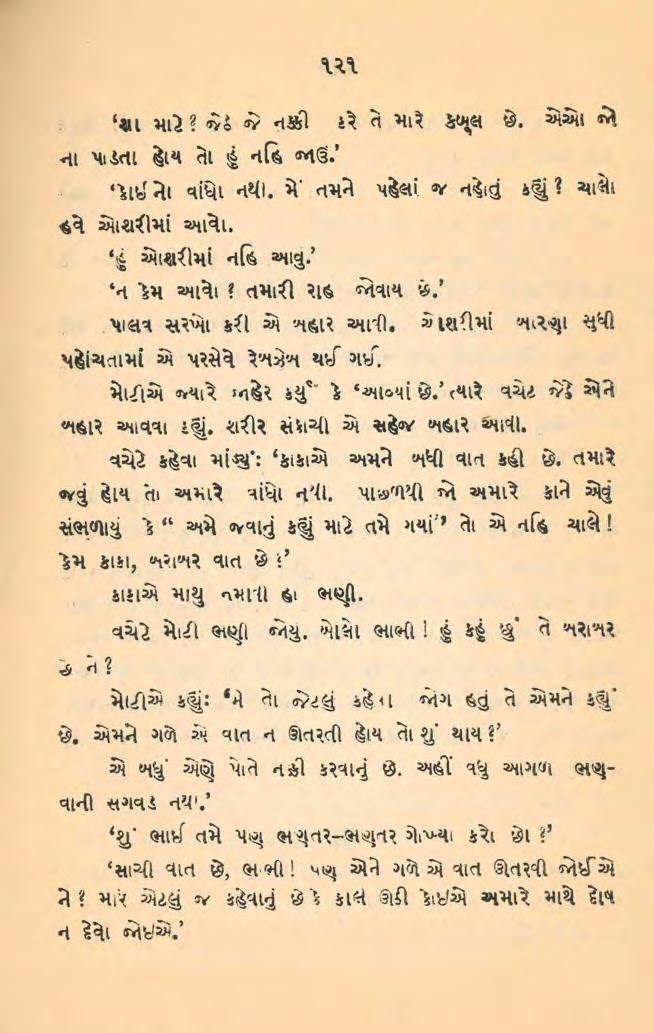 ૧૨૧
‘શા માટે? જેઠ જે નક્કી કરે તે મારે કબૂલ છે. એઓ જો
ના પાડતા હોય તો હું નહિ જાઉં.’
‘કોઈ નો વાંધો નથી. મેં તમને પહેલાં જ નહોતું કહ્યું? ચાલો
હવે ઓશરીમાં આવો.
‘હું ઓશરીમાં નહિ આવું.’
‘ન કેમ આવો? તમારી રાહ જોવાય છે.’
પાલવ સરખો કરી એ બહાર આવી. ઓશરીમાં બારણા સુધી
પહોંચતામાં એ પરસેવે રેબઝેબ થઈ ગઈ.
મોટીએ જ્યારે જાહેર કર્યું કે ‘આવ્યાં છે.’ ત્યારે વચેટ જેઠે એને
બહાર આવવા કહ્યું. શરીર સંકોચી એ સહેજ બહાર આવી.
વચેટે કહેવા માંડ્યું: ‘કાકાએ અમને બધી વાત કહી છે. તમારે
જવું હોય તો અમારે વાંધો નથી. પાછળથી જો અમારે કાને એવું
સંભળાયું કે “ અમે જવાનું કહ્યું માટે તમે ગયાં” તો એ નહિ ચાલે!
કેમ કાકા, બરાબર વાત છે?’
કાકાએ માથુ નમાવી હા ભણી.
વચેટે મોટી ભણી જોયુ. બોલો ભાભી! હું કહું છું તે બરાબર
છે ને?
મોટીએ કહ્યું: ‘મે તો જેટલું કહેવા જોગ હતું તે એમને કહ્યું
છે. એમને ગળે એ વાત ન ઊતરતી હોય તો શું થાય?’
એ બધું એણે પોતે નક્કી કરવાનું છે. અહીં વધુ આગળ ભણ-
વાની સગવડ નથી.’
‘શું ભાઈ તમે પણ ભણતર-ભણતર ગોખ્યા કરો છો?’
‘સાચી વાત છે, ભાભી! પણ એને ગળે એ વાત ઊતરવી જોઈએ
ને? મારે એટલું જ કહેવાનું છે કે કાલે ઊઠી કોઇએ અમારે માથે દોષ
ન દેવો જોઇએ.’